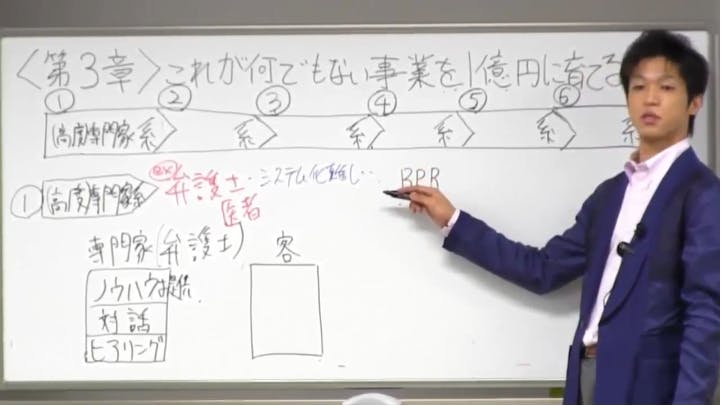 <第3章>これが何でもない事業を1億円に育てる
① ② ③ ④ ⑤ ⑥
(高度)専門家系 系 系 系 系 系
① (高度)専門家系 ex) 弁護士・システム化難し・・ BPR
医者
専門家(弁護士) 客
ノウハウ提供
対話
ヒアリング